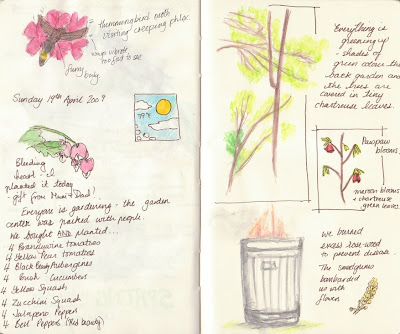 = hummingbird moth
= visiting creeping phlox.
wings vibrate
too fast to see
furry
body.
Sunday 19th April 2009
79°F
Bleeding
heart - I
planted it today
- gift from Mum + Dad!
Everyone is gardening - the garden
center was packed with people.
We bought AND planted...
4 Brandywine tomatoes
4 Yellow Pear tomatoes
4 Black Beauty Aubergines
4 Bush Cucumbers
4 Yellow Squash
4 Zucchini Squash
4 Jalapeno Pepper
4 Bell Pepper (Red beauty)
Everything is
greening up
- shades of
green colour the
back garden and
the trees are
covered in tiny
chartreuse leaves.
Pawpaw
blooms.
maroon blooms
+ chartreuse
green leaves.
We burned
excess wood
to prevent disease.
The
bombarded
us with